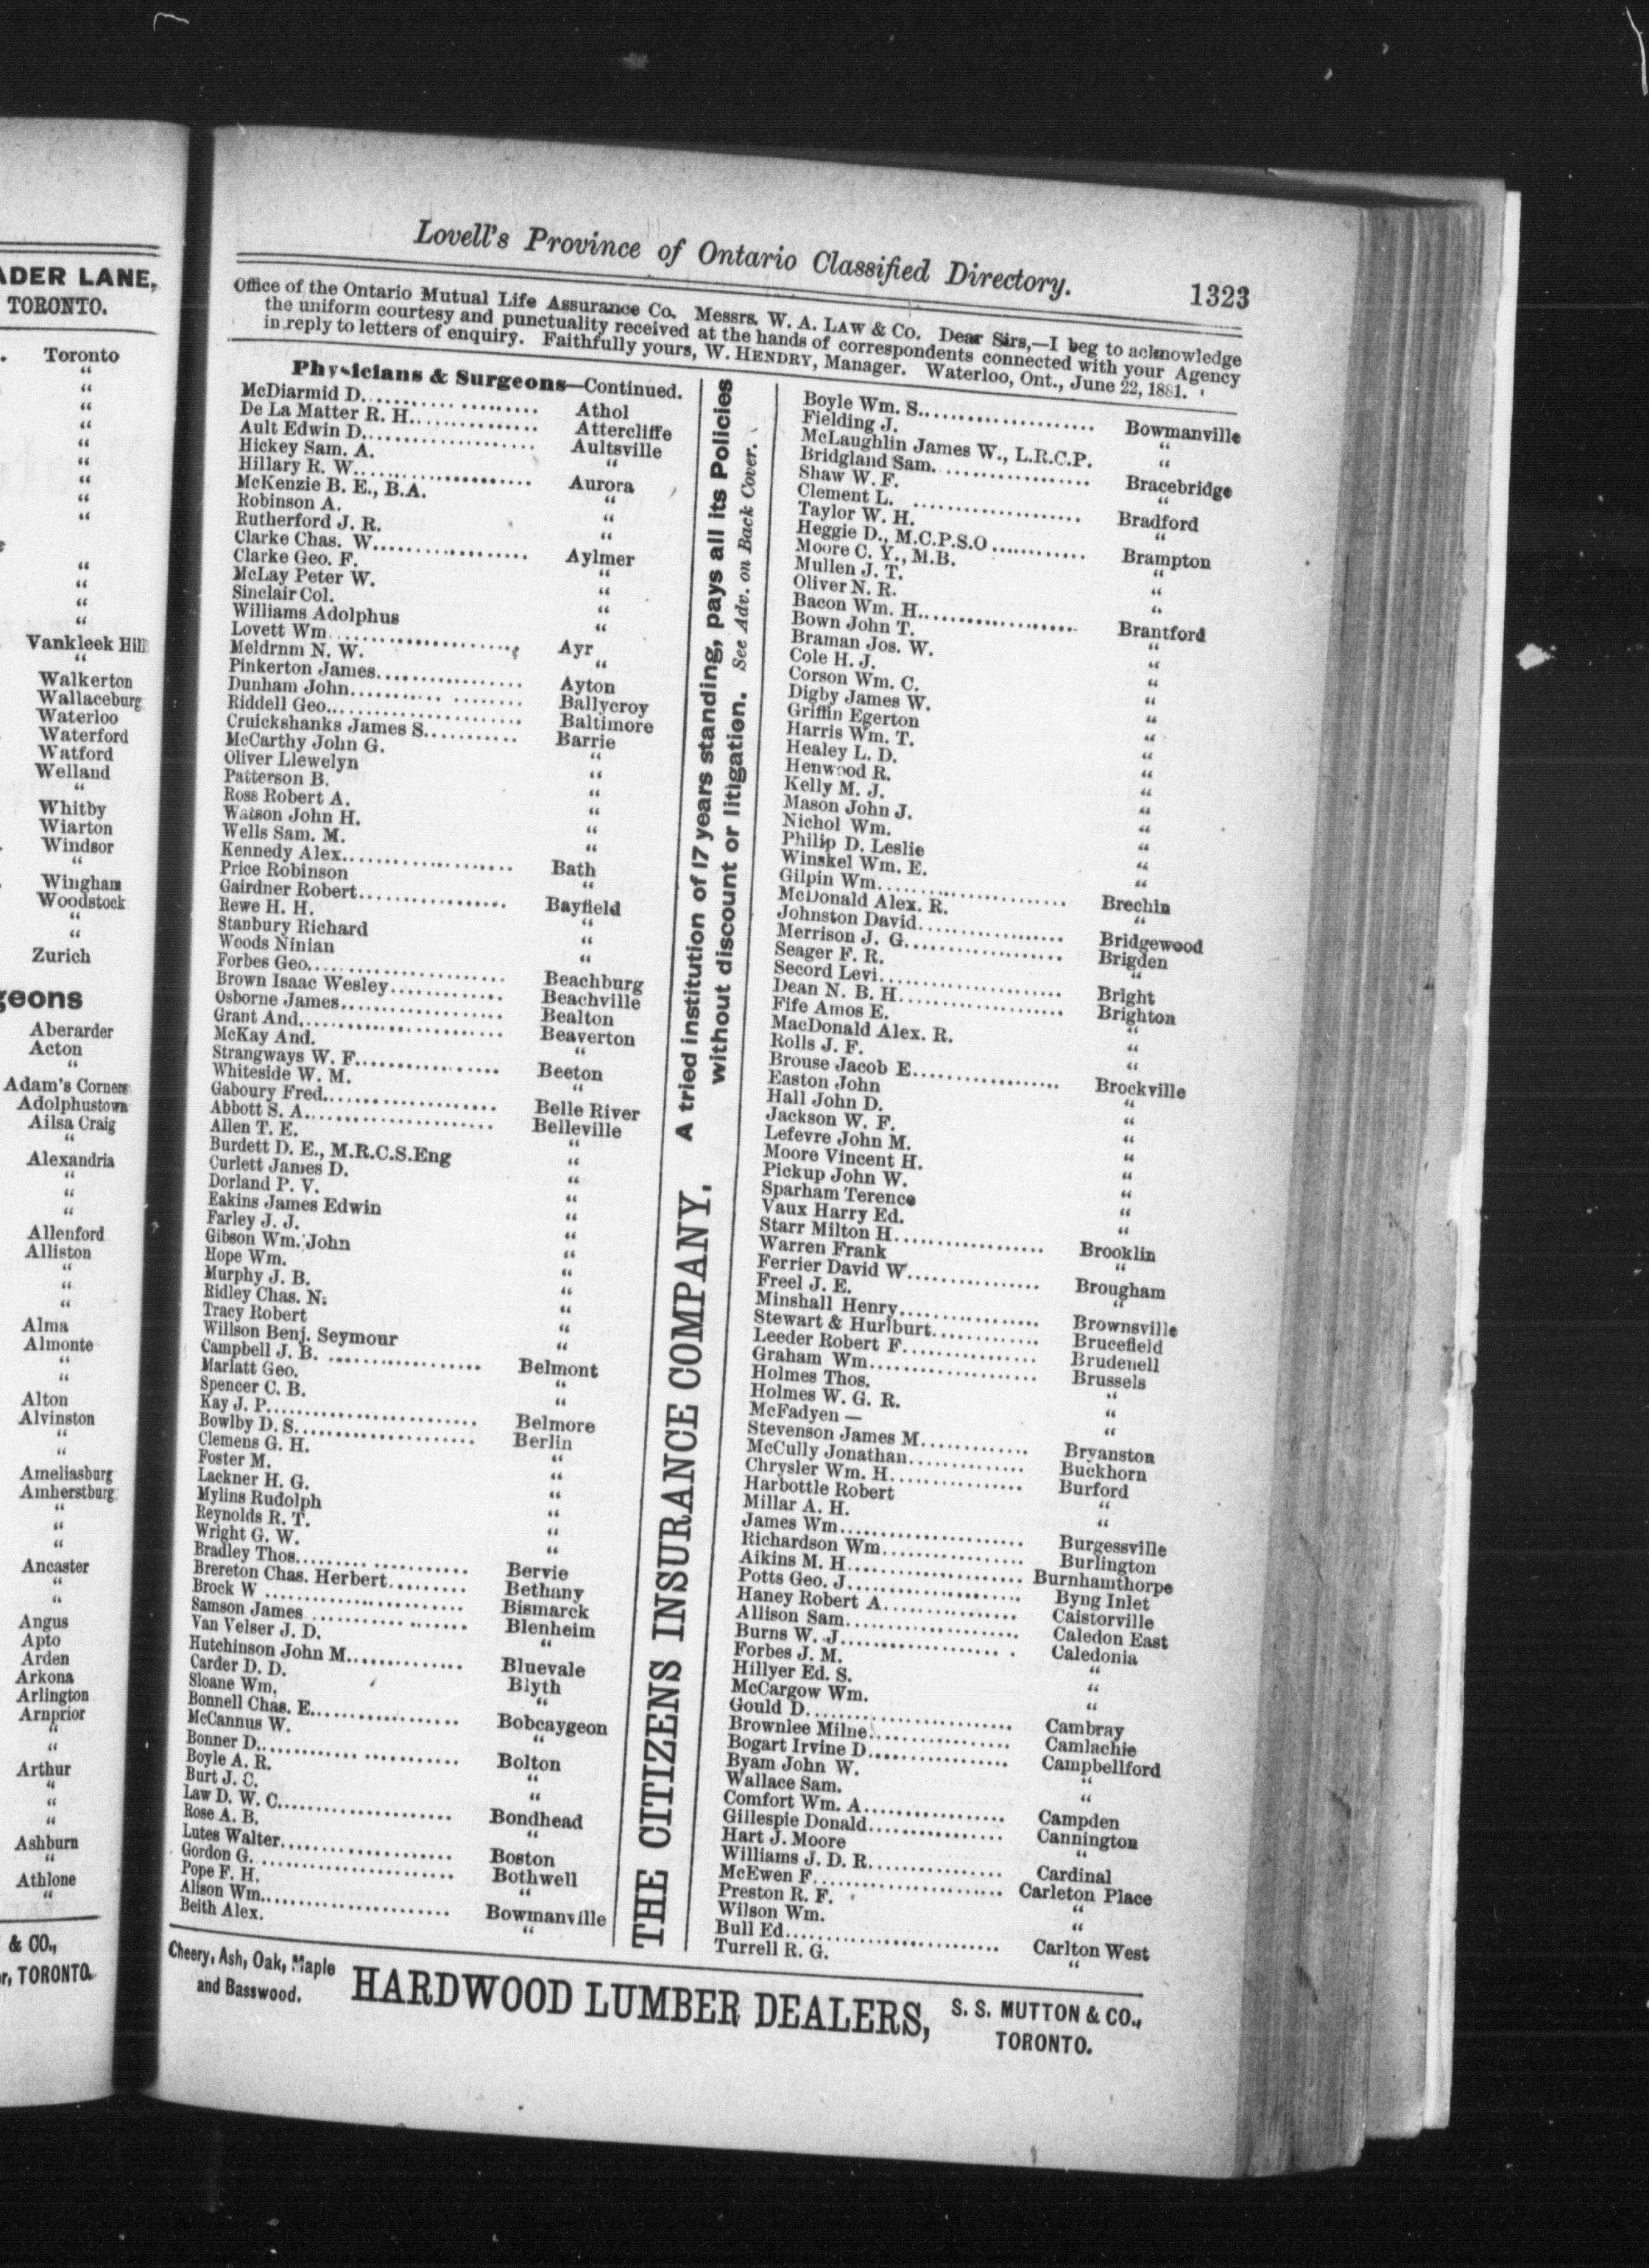 ADER LANE,
TORONTO.
Toronto
“
“
“
“
“
“
“
“
“
“
“
“
“
Vankleek Hill
“
Walkerton
Wallaceburg
Waterloo
Waterford
Watford
Welland
“
Whitby
Wiarton
Windsor
“
Wingham
Woodstock
“
“
Zurich
geons
Aberarder
Acton
“
Adam's Corners
Adolphustown
Ailsa Craig
“
Alexandria
“
“
“
Allenford
Alliston
“
“
“
Alma
Almonte
“
“
Alton
Alvinston
“
“
Ameliasburg
Amherstburg
“
“
“
Ancaster
“
“
Angus
Apto
Arden
Arkona
Arlington
Arnprior
“
“
Arthur
“
“
“
Ashburn
“
Athlone
“
& CO.,
r, TORONTO.
Lovell's Province of Ontario Classified Directory. 1323
Office of the Ontario Mutual Life Assurance Co. Messrs. W. A. LAW & CO. Dear Sirs,—I beg to acknowledge
the uniform courtesy and punctuality received at the hands of correspondents connected with your Agency
in reply to letters of enquiry. Faithfully yours, W. HENDRY, Manager. Waterloo, Ont., June 22, 1881.
Physicians & Surgeons—Continued.
McDiarmid D. Athol
De La Matter R. H. Attercliffe
Ault Edwin D. Aultsville
Hickey Sam. A. “
Hillary R. W. Aurora
McKenzie B. E., B.A. “
Robinson A. “
Rutherford J. R. “
Clarke Chas. W. Aylmer
Clarke Geo. F. “
McLay Peter W. “
Sinclair Col. “
Williams Adolphus “
Lovett Wm. Ayr
Meldrnm N. W. “
Pinkerton James. Ayton
Dunham John. Ballycroy
Riddell Geo. Baltimore
Cruickshanks James S. Barrie
McCarthy John G. “
Oliver Llewelyn “
Patterson B. “
Ross Robert A. “
Watson John H. “
Wells Sam. M. “
Kennedy Alex. Bath
Price Robinson “
Gairdner Robert. Bayfield
Rewe H. H. “
Stanbury Richard “
Woods Ninian “
Forbes Geo. Beachburg
Brown Isaac Wesley. Beachville
Osborne James. Bealton
Grant And. Beaverton
McKay And. “
Strangways W. F. Beeton
Whiteside W. M. “
Gaboury Fred. Belle River
Abbott S. A. Belleville
Allen T. E. “
Burdett D. E., M.R.C.S.Eng “
Curlett James D. “
Dorland P. V. “
Eakins James Edwin “
Farley J. J. “
Gibson Wm. John “
Hope Wm. “
Murphy J. B. “
Ridley Chas. N. “
Tracy Robert “
Willson Benj. Seymour “
Campbell J. B. Belmont
Marlatt Geo. “
Spencer C. B. “
Kay J. P. Belmore
Bowlby D. S. Berlin
Clemens G. H. “
Foster M. “
Lackner H. G. “
Mylins Rudolph “
Reynolds R. T. “
Wright G. W. “
Bradley Thos. Bervie
Brereton Chas. Herbert. Bethany
Brock W Bismarck
Samson James Blenheim
Van Velser J. D. “
Hutchinson John M. Bluevale
Carder D. D. Blyth
Sloane Wm. “
Bonnell Chas. E. Bobcaygeon
McCannus W. “
Bonner D. Bolton
Boyle A. R. “
Burt J. C. “
Law D. W. C. Bondhead
Rose A. B. “
Lutes Walter. Boston
Gordon G. Bothwell
Pope F. H. “
Alison Wm. Bowmanville
Beith Alex. “
THE CITIZENS INSURANCE COMPANY. A tried institution of 17 years standing, pays all its Policies
without discount or litigation. See Adv. on Back Cover.
Boyle Wm. S. Bowmanville
Fielding J. “
McLaughlin James W., L.R.C.P. “
Bridgland Sam. Bracebridge
Shaw W. F. “
Clement L. Bradford
Taylor W. H. “
Heggie D., M.C.P.S.O Brampton
Moore C. Y., M.B. “
Mullen J. T. “
Oliver N. R. “
Bacon Wm. H. Brantford
Bown John T. “
Braman Jos. W. “
Cole H. J. “
Corson Wm. C. “
Digby James W. “
Griffin Egerton “
Harris Wm. T. “
Healey L. D. “
Henwood R. “
Kelly M. J. “
Mason John J. “
Nichol Wm. “
Philip D. Leslie “
Winskel Wm. E. “
Gilpin Wm. Brechin
McDonald Alex. R. “
Johnston David. Bridgewood
Merrison J. G. Brigden
Seager F. R. “
Secord Levi. Bright
Dean N. B. H. Brighton
Fife Amos E. “
MacDonald Alex. R. “
Rolls J. F. “
Brouse Jacob E. Brockville
Easton John “
Hall John D. “
Jackson W. F. “
Lefevre John M. “
Moore Vincent H. “
Pickup John W. “
Sparham Terence “
Vaux Harry Ed. “
Starr Milton H. Brooklin
Warren Frank “
Ferrier David W. Brougham
Freel J. E. “
Minshall Henry. Brownsville
Stewart & Hurlburt. Brucefield
Leeder Robert F. Brudenell
Graham Wm. Brussels
Holmes Thos. “
Holmes W. G. R. “
McFadyen — “
Stevenson James M. Bryanston
McCully Jonathan. Buckhorn
Chrysler Wm. H. Burford
Harbottle Robert “
Millar A. H. “
James Wm. Burgessville
Richardson Wm. Burlington
Aikins M. H. Burnhamthorpe
Potts Geo. J. Byng Inlet
Haney Robert A. Caistorville
Allison Sam. Caledon East
Burns W. J. Caledonia
Forbes J. M. “
Hillyer Ed. S. “
McCargow Wm. “
Gould D. Cambray
Brownlee Milne. Camlachie
Bogart Irvine D. Campbellford
Byam John W. “
Wallace Sam. “
Comfort Wm. A. Campden
Gillespie Donald. Cannington
Hart J. Moore “
Williams J. D. R. Cardinal
McEwen F. Carleton Place
Preston R. F. “
Wilson Wm. “
Bull Ed. Carlton West
Turrell R. G. “
Cheery, Ash, Oak, Maple
and Basswood.
HARDWOOD LUMBER DEALERS,
S. S. MUTTON & CO.,
TORONTO.